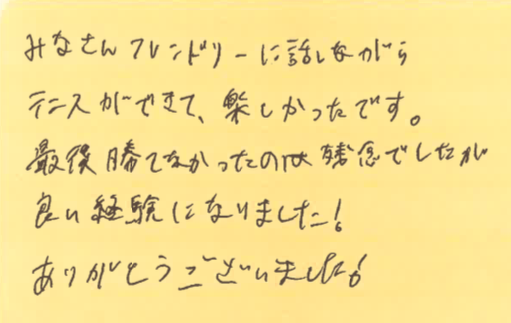 みなさんフレンドリーに話しながら
テニスができて、楽しかったです。
最後勝てなかったのは残念でしたが
良い経験になりました!
ありがとうございました!